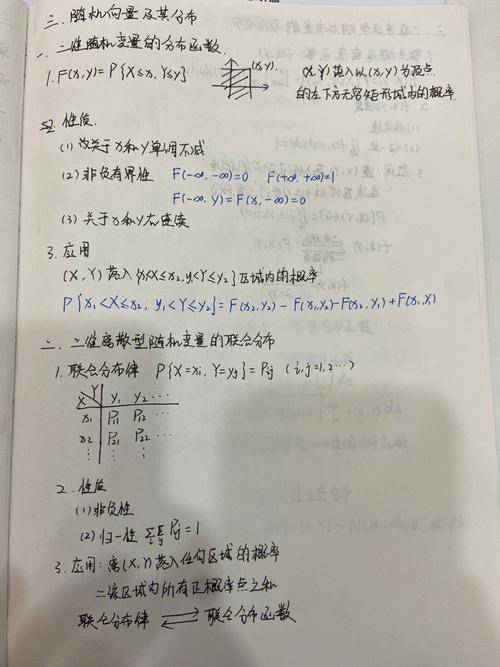 三. 随机向量及其分布
一. 二维随机变量的分布函数.
1. F(x,y)=P{X≤x, Y≤y}
(x,y).
(X,Y)落入以(x,y)为顶点
的左下方无穷矩形域内的概率.
2. 性质.
(1) 关于x和y单调不减
(2) 非负有界性 F(-∞,-∞)=0 F(+∞,+∞)=1
F(-∞,y)=F(x,-∞)=0
(3) 关于x和y右连续
3. 应用
(X,Y)落入{x₁<X≤x₂, y₁<Y≤y₂}区域内的概率
P{x₁<X≤x₂, y₁<Y≤y₂}=F(x₂,y₂)-F(x₁,y₂)-F(x₂,y₁)+F(x₁,y₁)
二. 二维离散型随机变量的联合分布
1. 联合分布律 P{X=xi, Y=yj}=Pij (i,j=1,2…)
X Y y₁ y₂ …
x₁ P₁₁ P₁₂ …
x₂ P₂₁ P₂₂ …
⋮ ⋮ ⋮
2. 性质
(1) 非负性
(2) 归一性 ΣΣPij=1
i j
3. 应用: 离(X,Y)落入任何区域的概率
=该区域内所有正概率点之和
联合分布律 ⇌ 联合分布函数